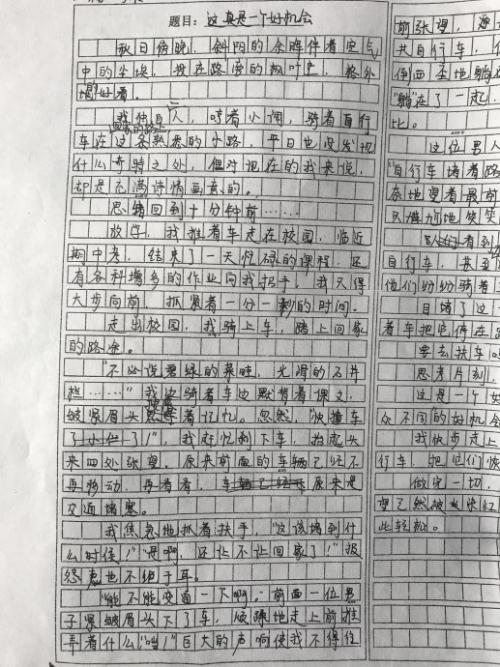 题目：这真是一个好机会
秋日傍晚，斜阳的余晖伴着空气
中的尘埃，投在路旁的枫叶上，格外
的好看。
我独自一人，哼着小调，骑着自行
回家的路上
车在这条熟悉的小路，平日也没发现
什么奇特之处，但对现在的我来说，
却是充满诗情画意的。
思绪回到十分钟前……
放学，我推着车走在校园，临近
期中考，结束了一天忙碌的课程，还
有各科增多的作业向我招手，我只得
大步向前，抓紧着一分一秒的时间。
走出校园，我骑上车，踏上回家
的路途。
"不必说碧绿的菜畦，光滑的石井
栏……"我边骑着车边默背着课文，
皱紧眉头 着记忆。忽然，"快撞车
了 了！"，我赶忙刹下车，抬起头
来四处张望。原来前面的车辆已经不
再移动，再看看，车辆已经 原来是
交通堵塞。
我焦急地抓着扶手，"这该堵到什
么时候！""是啊，还让不让回家了！"报
怨声也不绝于耳。
"能不能安面一下啊。"前面一位男
子紧皱眉头下了车，烦躁地走上前推
弄着什么"啪！"巨大的声响使我不得往
前张望，
共自行车，
倒四歪地躺
"躺"在了一起
比。
这位男人
"自行车堵着路
杂地望着最前
只尴尬地笑笑
人们看到
自行车，甚至
他们纷纷骑着
目睹了这
着车把它停在
要去扶车
思考片刻
这是一个好
众不同的好机会
我快步走上
行车，把它们
做完一切，
望已然被 染红
此轻松。